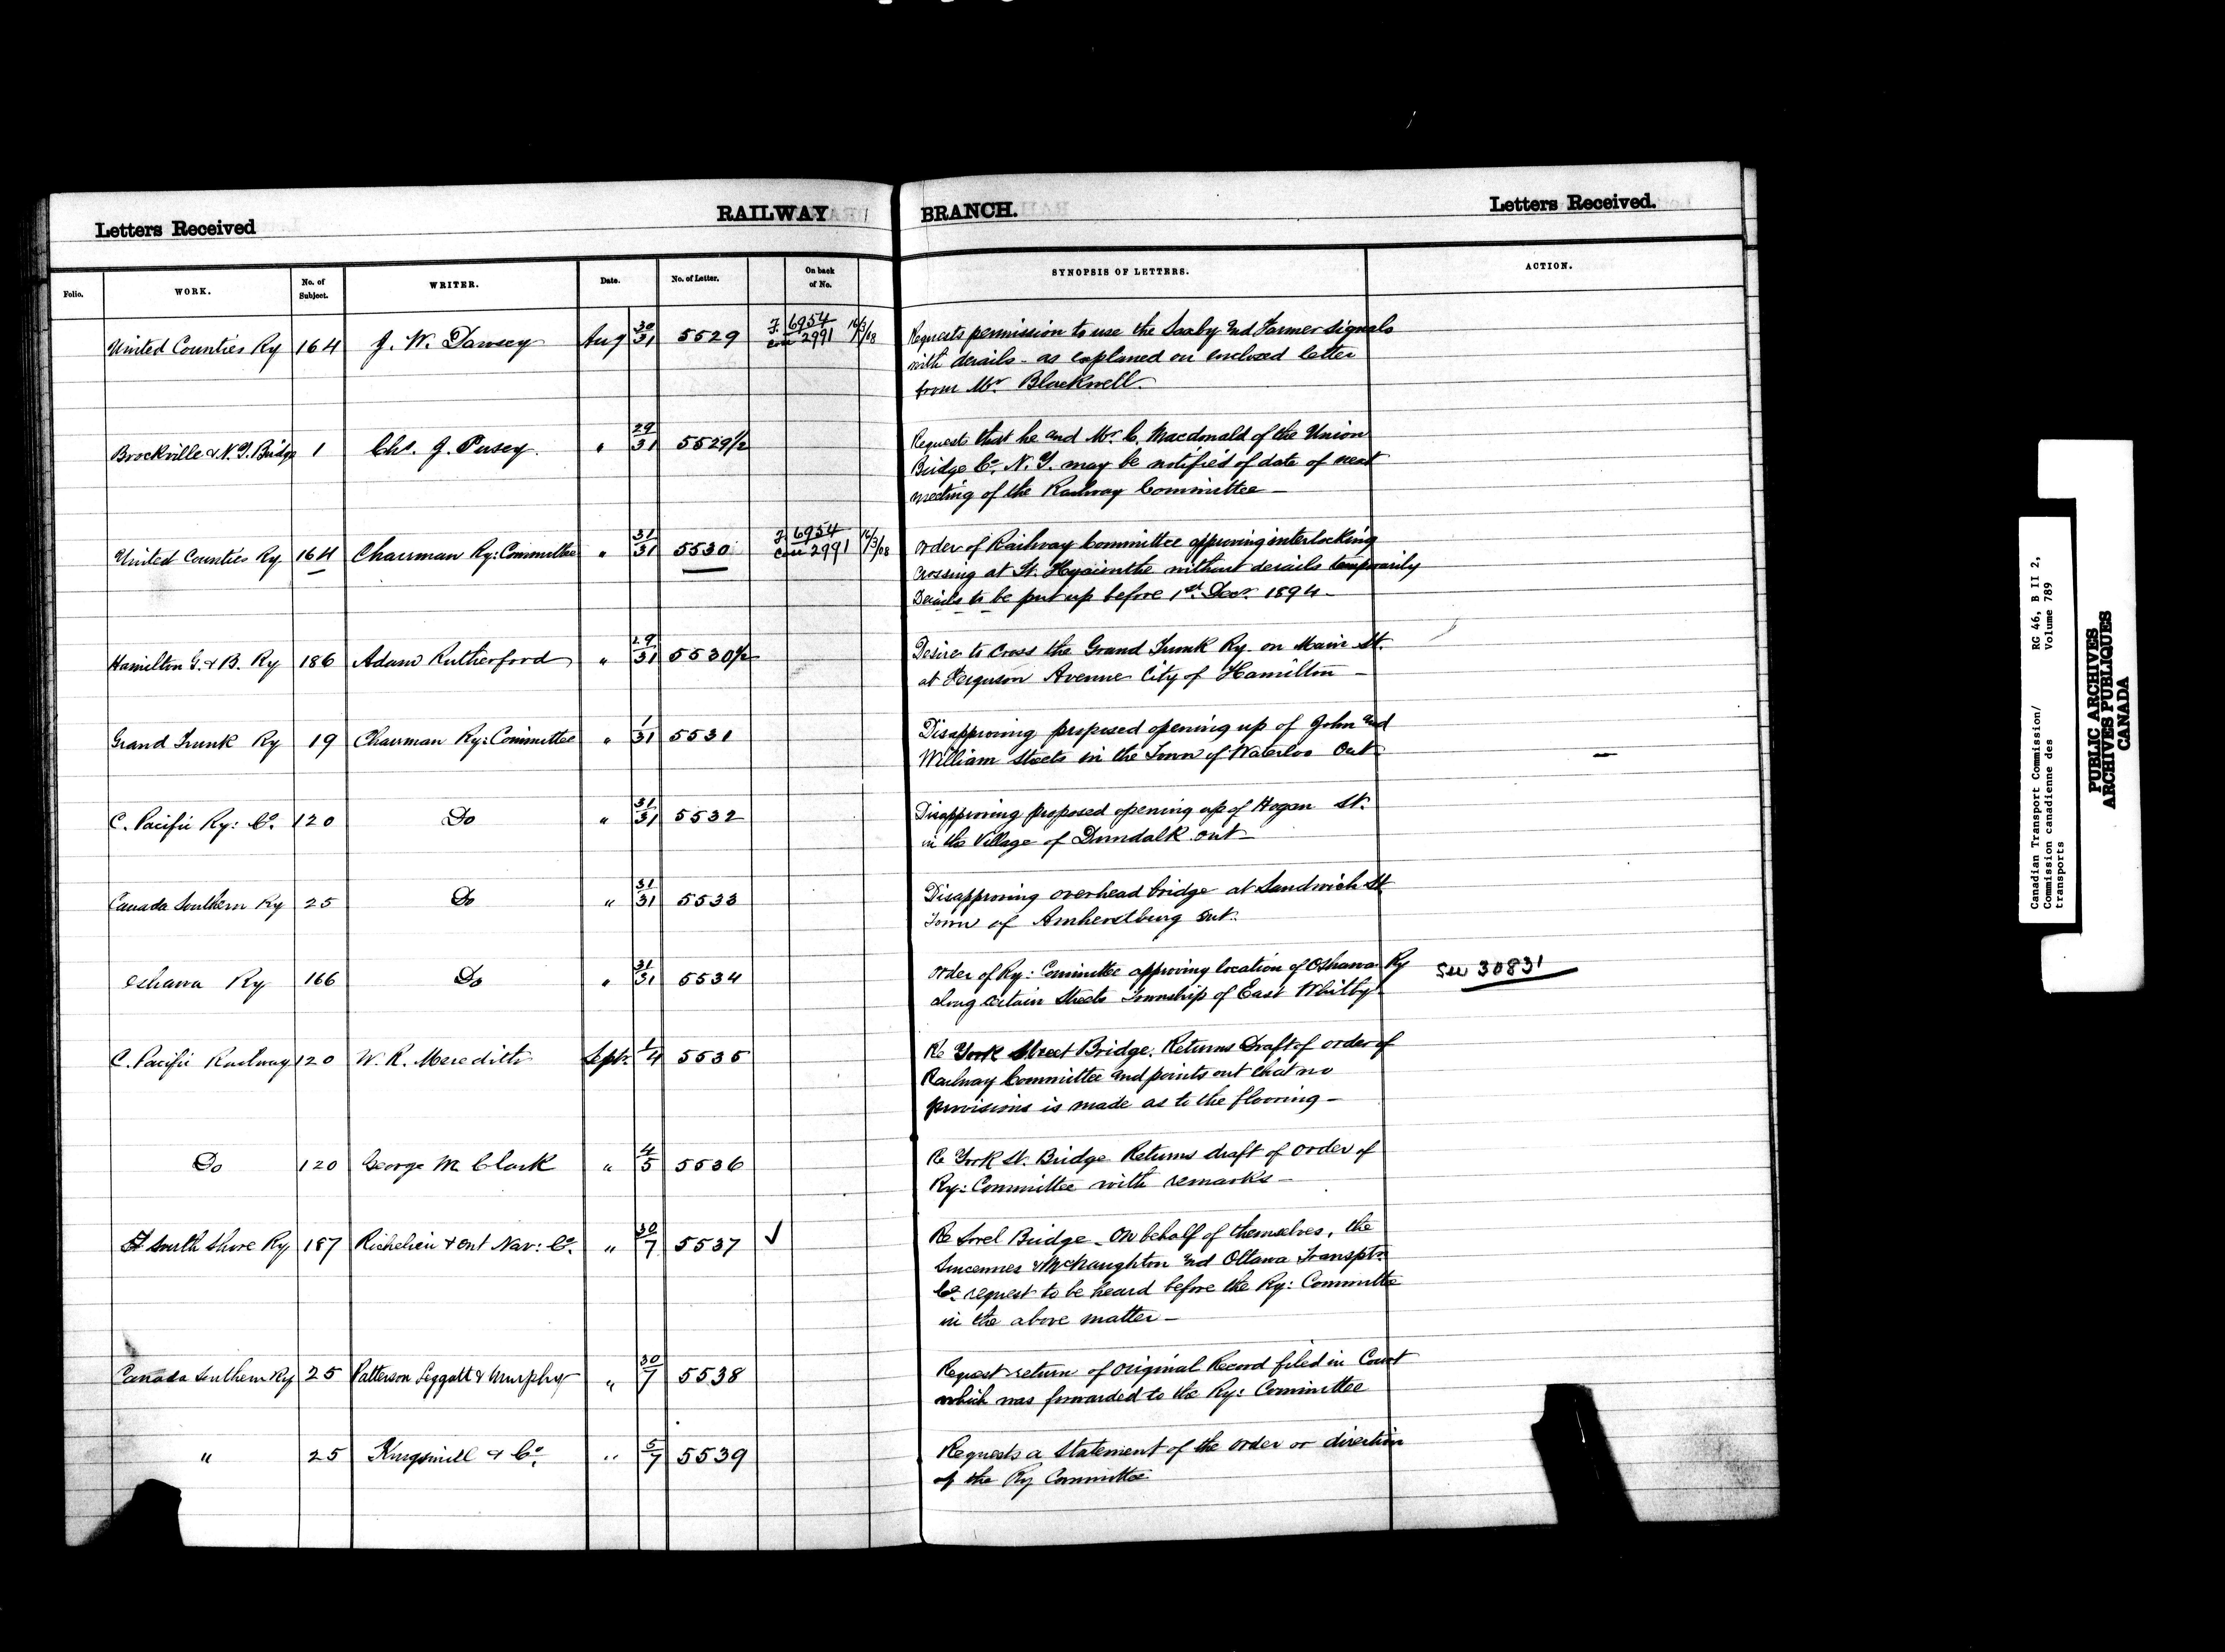 Letters Received RAILWAY BRANCH. Letters Received.
Folio. WORK. No. of Subject. WRITER. Date. No. of Letter. On back of No. SYNOPSIS OF LETTERS. ACTION.
United Counties Ry 164 J. W. Dawsey Aug 30/31 5529 F. 6954 16/3/08 Requests permission to use the Saxby and Farmer signals
Case 2991 with derails - as explaned on enclosed letter
from Mr. Blackwell.
Brockville & N.Y. Bridge 1 Chs. J. Pusey. " 29/31 5529½ Requests that he and Mr. C. Macdonald of the Union
Bridge Co. N. Y. may be notified of date of next
meeting of the Railway Committee -
United Counties Ry 164 Chairman Ry: Committee " 31/31 5530 F. 6954 16/3/08 Order of Railway Committee approving interlocking
Case 2991 crossing at St. Hyacinthe without derails temporarily
Derails to be put up before 1st. Decr. 1894 -
Hamilton G. & B. Ry 186 Adam Rutherford " 29/31 5530½ Desire to cross the Grand Trunk Ry. on Main St.
at Ferguson Avenue City of Hamilton -
Grand Trunk Ry 19 Chairman Ry: Committee " 1/31 5531 Disapproving proposed opening up of John and
William Streets in the Town of Waterloo Ont -
C. Pacific Ry: Co. 120 Do " 31/31 5532 Disapproving proposed opening up of Hogan St.
in the Village of Dundalk Ont -
Canada Southern Ry 25 Do " 31/31 5533 Disapproving overhead bridge at Sandwich St
Town of Amherstburg Ont.
Oshawa Ry 166 Do " 31/31 5534 Order of Ry: Committee approving location of Oshawa Ry See 30831
along certain Streets Township of East Whitby -
C. Pacific Railway 120 W. R. Meredith Sept. 1/4 5535 Re York Street Bridge. Returns Draft of order of
Railway Committee and points out that no
provisions is made as to the flooring -
Do 120 George M Clark " 4/5 5536 Re York St. Bridge Returns draft of order of
Ry: Committee with remarks -
South Shore Ry 187 Richelieu & Ont Nav: Co. " 30/7 5537 ✓ Re Sorel Bridge - On behalf of themselves, the
Sincennes & McNaughton and Ottawa Transptn.
Co. request to be heard before the Ry: Committe
in the above matter -
Canada Southern Ry 25 Patterson Leggatt & Murphy " 30/7 5538 Request return of original Record filed in Court
which was forwarded to the Ry: Committee
" 25 Kingsmill & Co. " 5/7 5539 Requests a statement of the order or direction
of the Ry Committee
Canadian Transport Commission/ RG 46, B II 2,
Commission canadienne des Volume 789
transports
PUBLIC ARCHIVES
ARCHIVES PUBLIQUES
CANADA